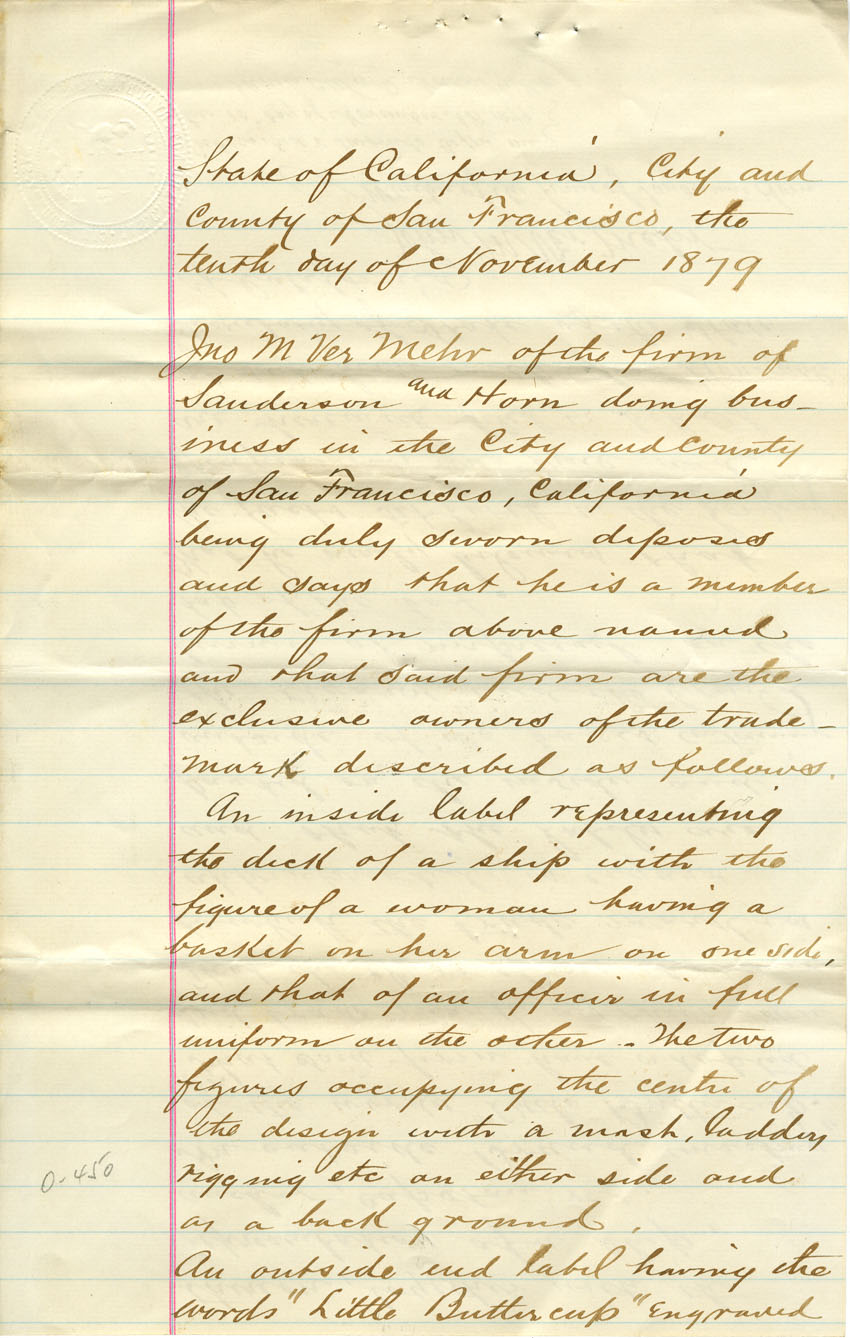 State of California, City and
County of San Francisco, the
tenth day of November 1879
Jno M Ver Mehr of the firm of
Sanderson and Horn doing bus-
iness in the City and County
of San Francisco, California
being duly sworn deposes
and says that he is a member
of the firm above named
and that said firm are the
exclusive owners of the trade-
mark described as follows.
An inside label representing
the deck of a ship with the
figure of a woman having a
basket on her arm on one side,
and that of an officer in full
uniform on the other. The two
figures occupying the centre of
the design with a mast, ladders,
rigging etc on either side and
as a back ground.
An outside end label having the
words "Little Buttercup" engraved
0-450